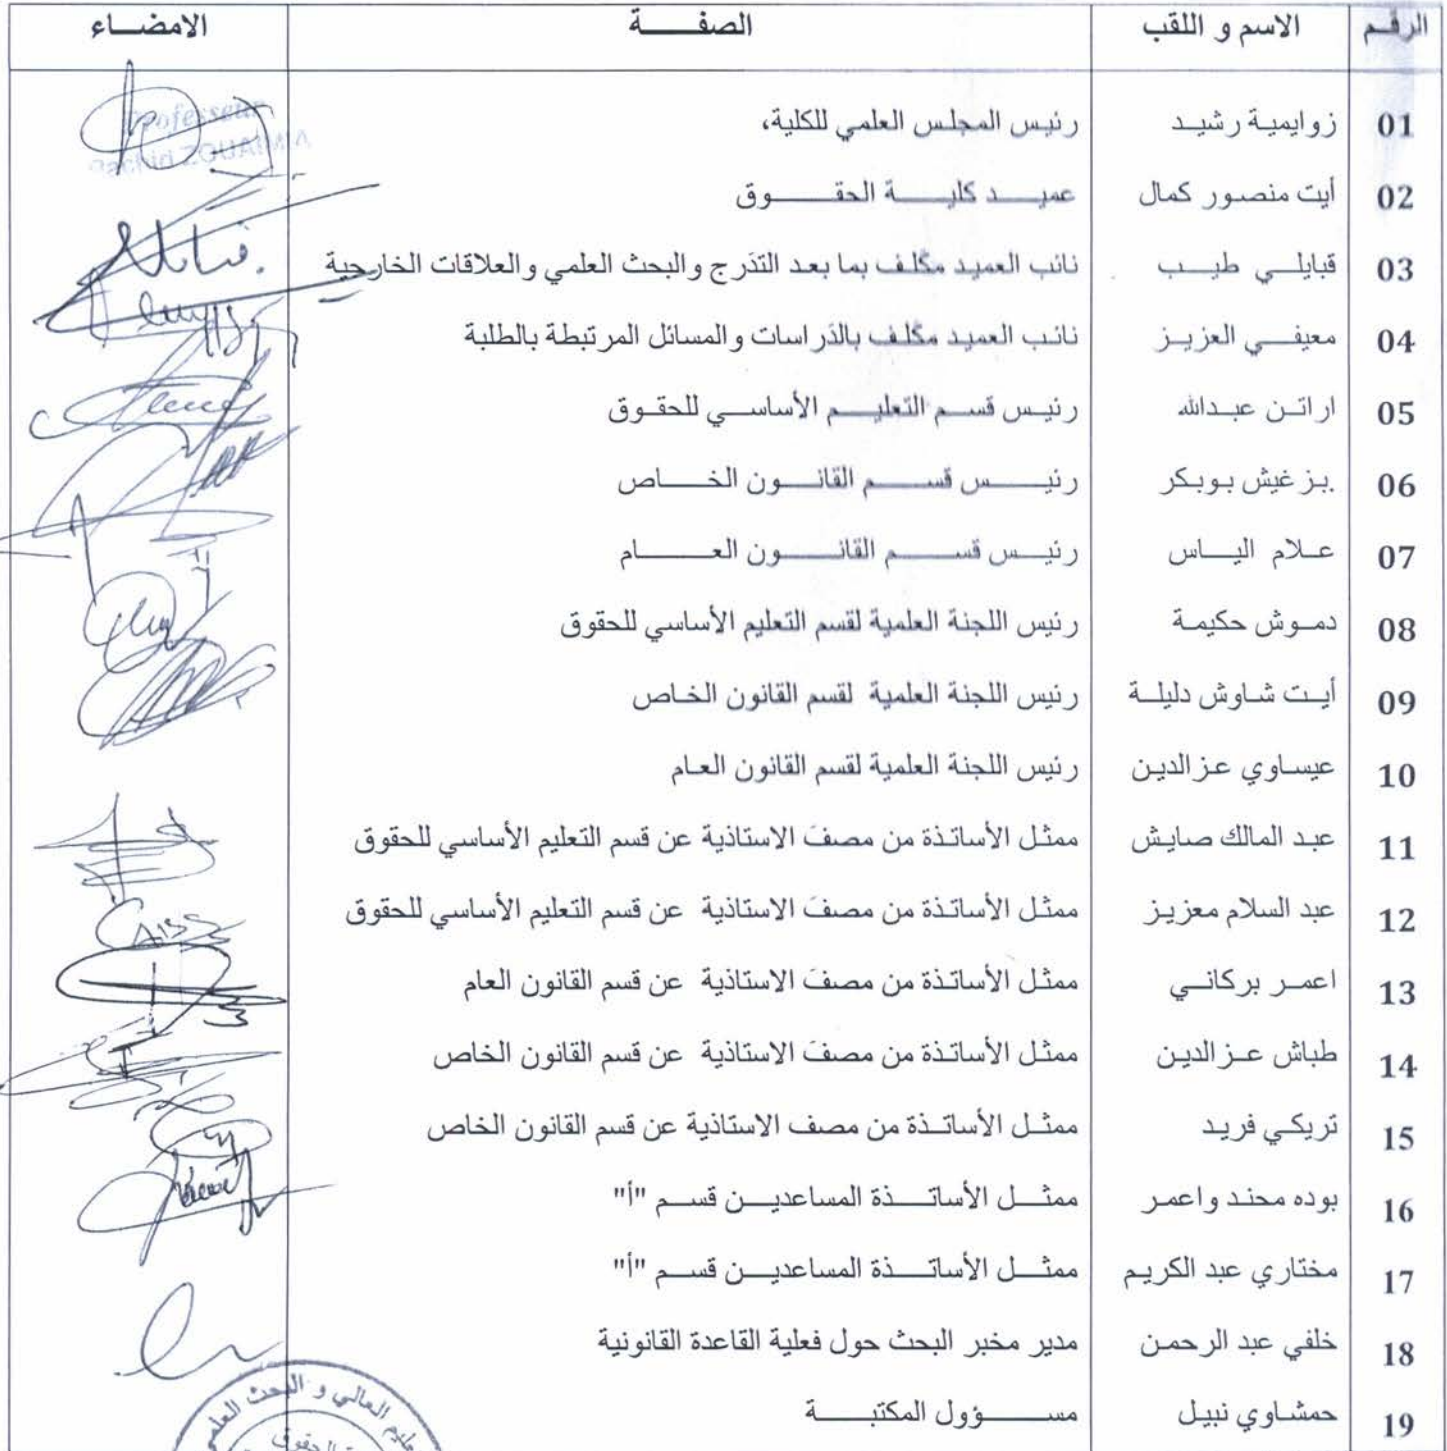 الرقم الاسم و اللقب الصفة الامضاء
01 زوايمية رشيد رئيس المجلس العلمي للكلية،
Professeur
Rachid ZOUAIMIA
02 أيت منصور كمال عميد كلية الحقوق
03 قبايلي طيب نائب العميد مكلف بما بعد التدرج والبحث العلمي والعلاقات الخارجية
04 معيفي العزيز نائب العميد مكلف بالدراسات والمسائل المرتبطة بالطلبة
05 اراتن عبدالله رئيس قسم التعليم الأساسي للحقوق
06 بزغيش بوبكر رئيس قسم القانون الخاص
07 علام الياس رئيس قسم القانون العام
08 دموش حكيمة رئيس اللجنة العلمية لقسم التعليم الأساسي للحقوق
09 أيت شاوش دليلة رئيس اللجنة العلمية لقسم القانون الخاص
10 عيساوي عزالدين رئيس اللجنة العلمية لقسم القانون العام
11 عبد المالك صايش ممثل الأساتذة من مصفَ الاستاذية عن قسم التعليم الأساسي للحقوق
12 عبد السلام معزيز ممثل الأساتذة من مصفَ الاستاذية عن قسم التعليم الأساسي للحقوق
13 اعمر بركاني ممثل الأساتذة من مصفَ الاستاذية عن قسم القانون العام
14 طباش عزالدين ممثل الأساتذة من مصفَ الاستاذية عن قسم القانون الخاص
15 تريكي فريد ممثل الأساتذة من مصف الاستاذية عن قسم القانون الخاص
16 بوده محند واعمر ممثل الأساتذة المساعدين قسم "أ"
17 مختاري عبد الكريم ممثل الأساتذة المساعدين قسم "أ"
18 خلفي عبد الرحمن مدير مخبر البحث حول فعلية القاعدة القانونية
19 حمشاوي نبيل مسؤول المكتبة
العالي و البحث العلمي
الحقوق